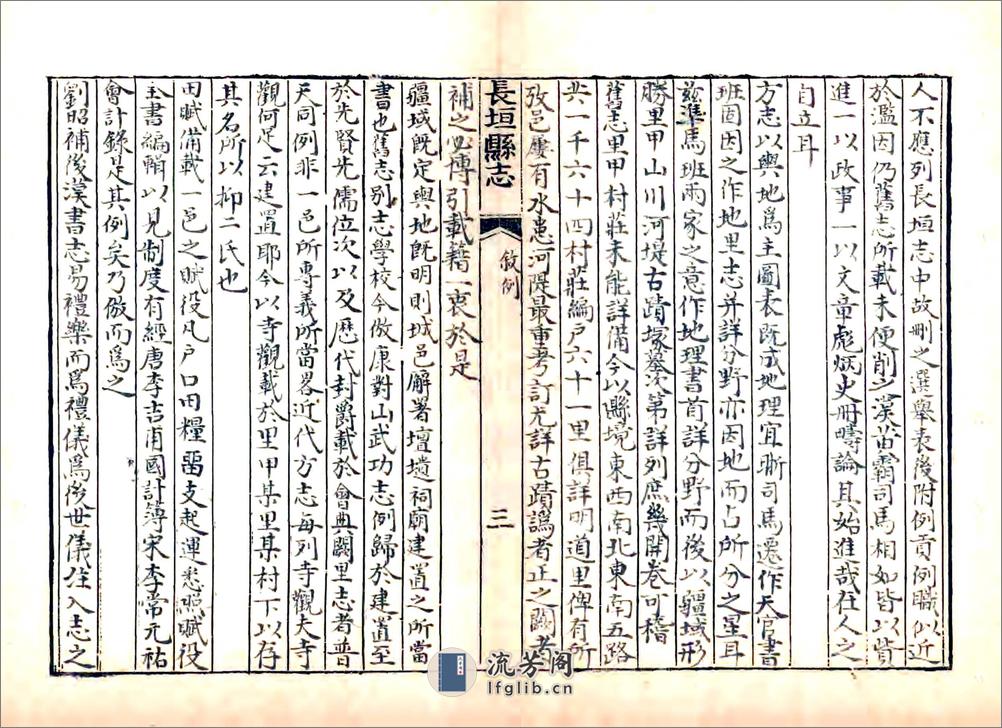 人不應列長垣志中故刪之選舉表後附例貢例職似近
於濫因仍舊志所載未便削之漢苗霸司馬相如皆以貲
進一以政事一以文章彪炳史冊疇論其始進哉在人之
自立耳
方志以輿地爲主圖表既成地理宜晰司馬遷作天官書
班固因之作地里志并詳分野亦因地而占所分之星耳
茲準馬班兩家之意作地理書首詳分野而後以疆域形
勝里甲山川河堤古蹟塚墓次第詳列庶幾開卷可稽
舊志里甲村莊未能詳備今以縣境東西南北東南五路
共一千六十四村莊編戶六十一里俱詳明道里俾有所
攷邑屢有水患河隄最重考訂尤詳古蹟譌者正之闕者
長垣縣志
敘例
三
補之必博引載籍一衷於是
疆域既定輿地既明則城邑廨署壇壝祠廟建置之所當
書也舊志別志學校今倣康對山武功志例歸於建置至
於先賢先儒位次以及歷代封爵載於會典闕里志者普
天同例非一邑所專義所當畧近代方志每列寺觀夫寺
觀何足云建置耶今以寺觀載於里甲某里某村下以存
其名所以抑二氏也
田賦備載一邑之賦役凡戶口田糧畱支起運悉照賦役
全書編輯以見制度有經唐李吉甫國計簿宋李常元祐
會計錄是其例矣乃倣而爲之
劉昭補後漢書志易禮樂而爲禮儀爲後世儀注入志之
流芳阁
lfglib.cn